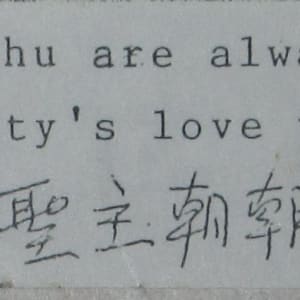 hu are alwa
ty's love
聖主朝朝